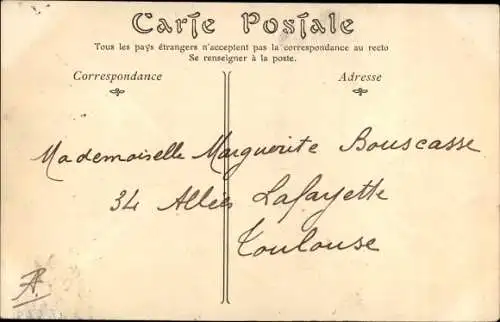 Carte Postale
Tous les pays étrangers n'acceptent pas la correspondance au recto
Se renseigner à la poste.
Correspondance
Adresse
Mademoiselle Marguerite Bouscasse
34 Allées Lafayette
Toulouse